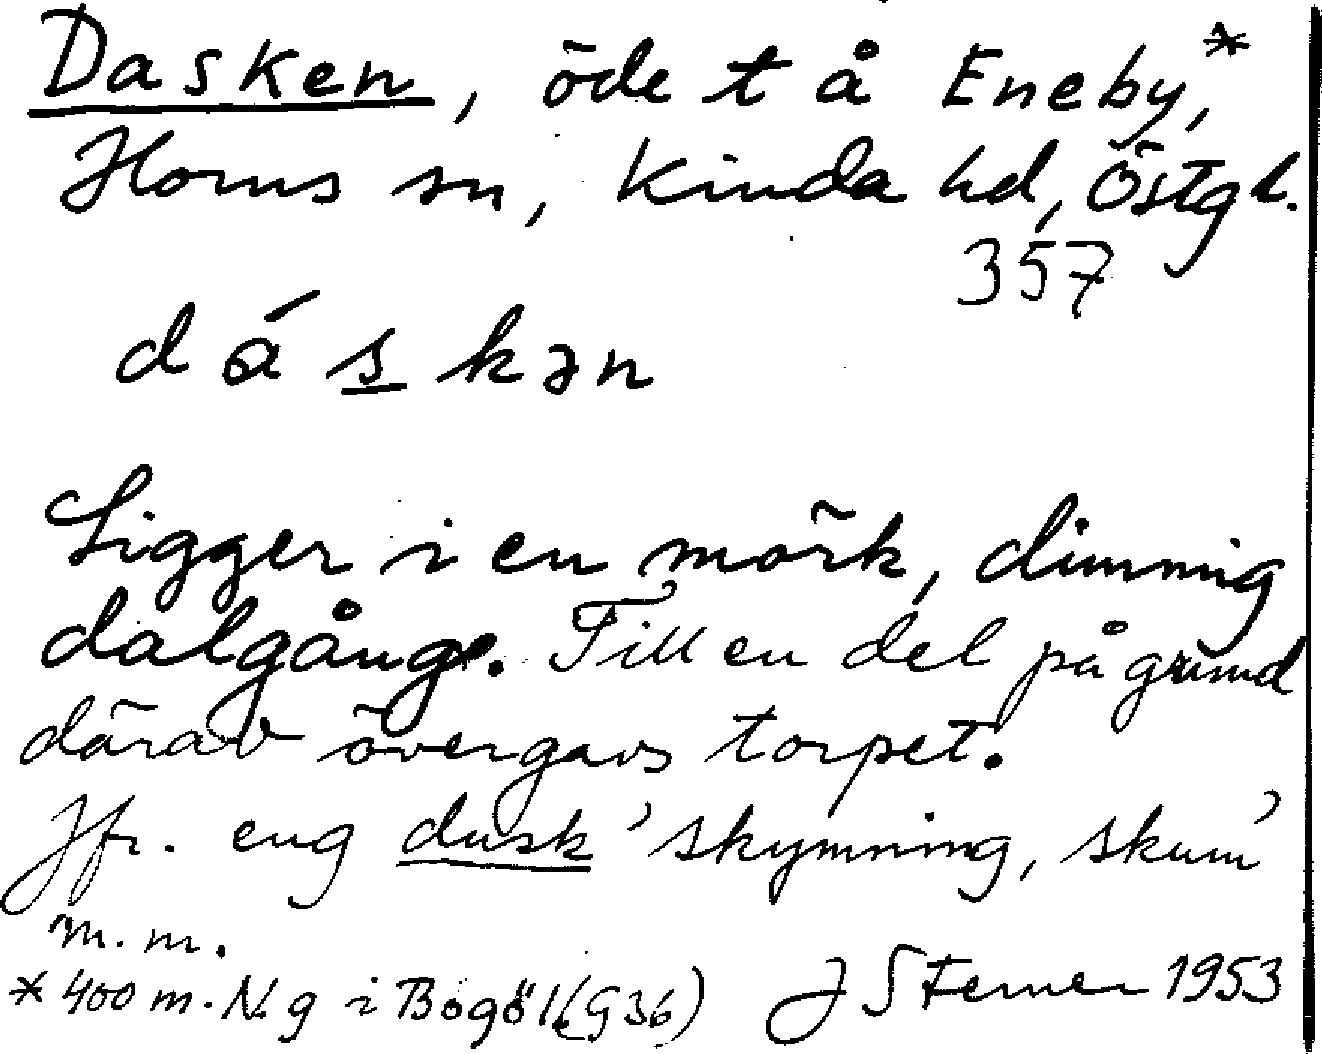 Dasken, öde t å Eneby,*
Horns sn, Kinda hd, Östgl.
357
dáskən
Ligger i en mörk, dimmig
dalgång. Till en del på grund
därav övergavs torpet.
Jfr. eng dusk 'skymning, skum'
m.m.
* 400 m. N. g i Bogöl (G36) J Sterner 1953